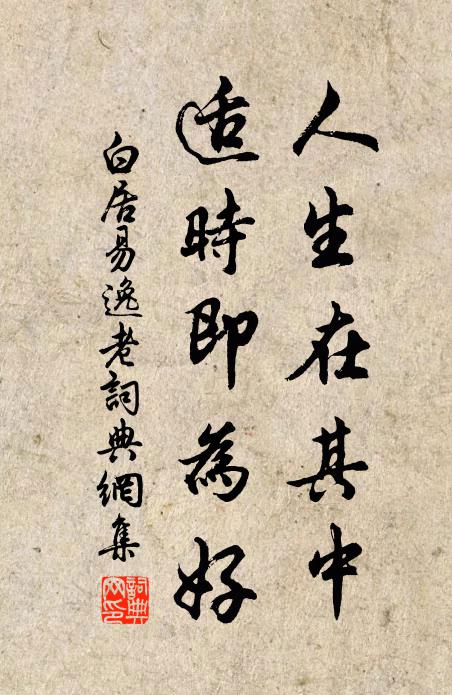 人生在其中
适時即為好
白居易逸老詞典網集
詞典網印